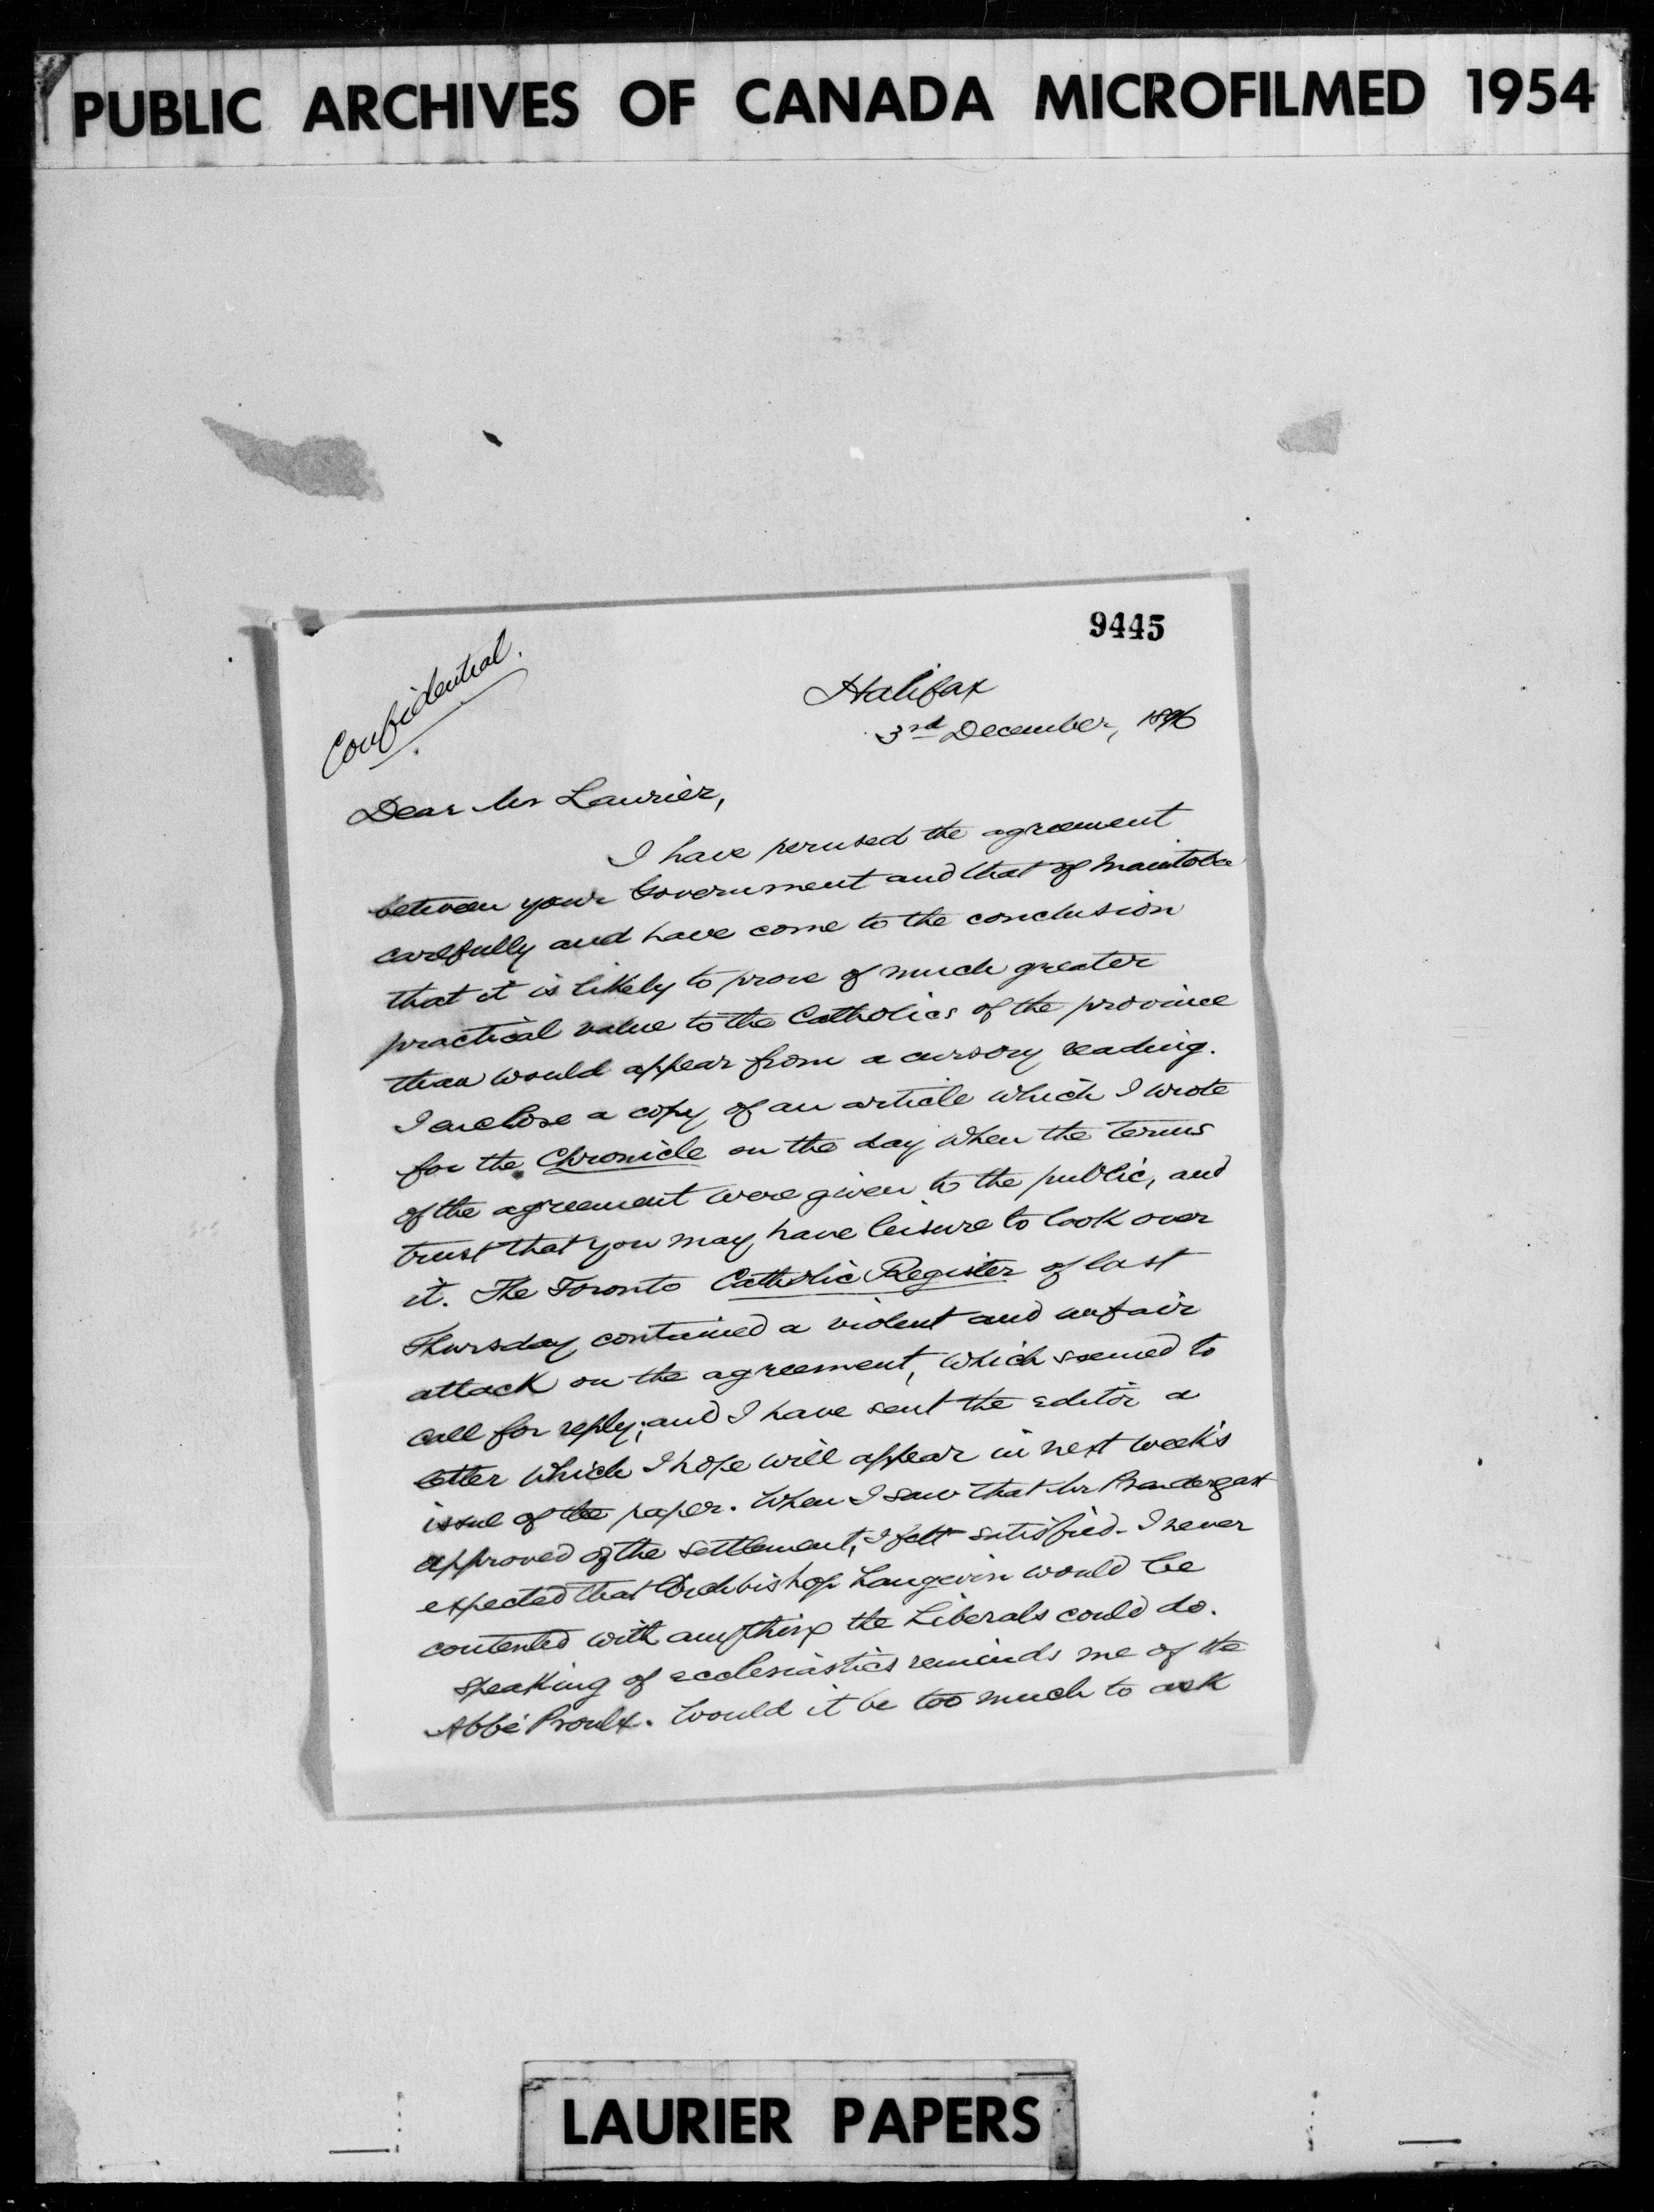 PUBLIC ARCHIVES OF CANADA MICROFILMED 1954
9445
Confidential.
Halifax
3rd December, 1896
Dear Mr Laurier,
I have perused the agreement
between your Government and that of Manitoba
carefully and have come to the conclusion
that it is likely to prove of much greater
practical value to the Catholics of the province
than would appear from a cursory reading.
I enclose a copy of an article which I wrote
for the Chronicle on the day when the terms
of the agreement were given to the public, and
trust that you may have leisure to look over
it. The Toronto Catholic Register of last
Thursday contained a violent and unfair
attack on the agreement, which seemed to
call for reply; and I have sent the editor a
letter which I hope will appear in next week's
issue of the paper. When I saw that Mr Prendergast
approved of the settlement, I felt satisfied. I never
expected that Archbishop Langevin would be
contented with anything the Liberals could do.
Speaking of ecclesiastics reminds me of the
Abbé Proulx. Would it be too much to ask
LAURIER PAPERS